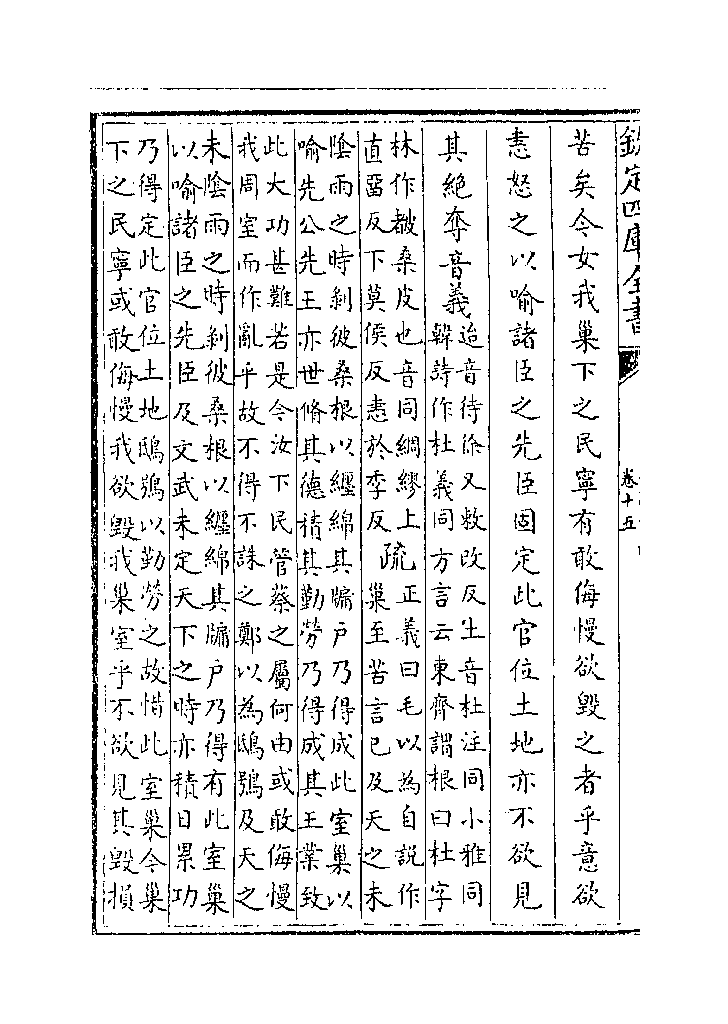 欽定四庫全書
卷十五
苦矣今女我巢下之民寧有敢侮慢欲毀之者乎意欲
恚怒之以喻諸臣之先臣固定此官位土地亦不欲見
其絶奪音義
迨音待徐又敕改反土音杜注同小雅同
韓詩作杜義同方言云東齊謂根曰杜字
林作㪿桑皮也音同綢繆上
直留反下莫侯反恚於季反
疏
正義曰毛以為自説作
巢至苦言已及天之未
陰雨之時剥彼桑根以纒綿其牖户乃得成此室巢以
喻先公先王亦世脩其德積其勤勞乃得成其王業致
此大功甚難若是今汝下民管蔡之屬何由或敢侮慢
我周室而作亂乎故不得不誅之鄭以為鴟鴞及天之
未陰雨之時剥彼桑根以纒綿其牖户乃得有此室巢
以喻諸臣之先臣及文武未定天下之時亦積日累功
乃得定此官位土地鴟鴞以勤勞之故惜此室巢今巢
下之民寧或敢侮慢我欲毀我巢室乎不欲見其毀損